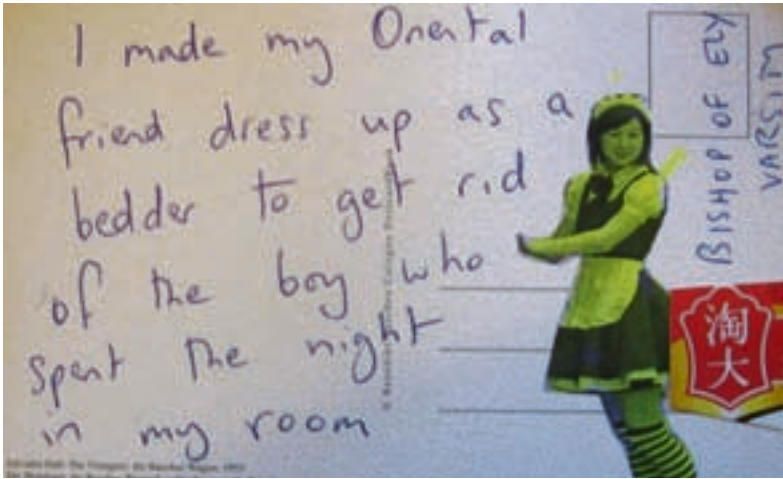 I made my Oriental
friend dress up as a
bedder to get rid
of the boy who
spent the night
in my room
BISHOP OF ELY
VARSITY
淘
大